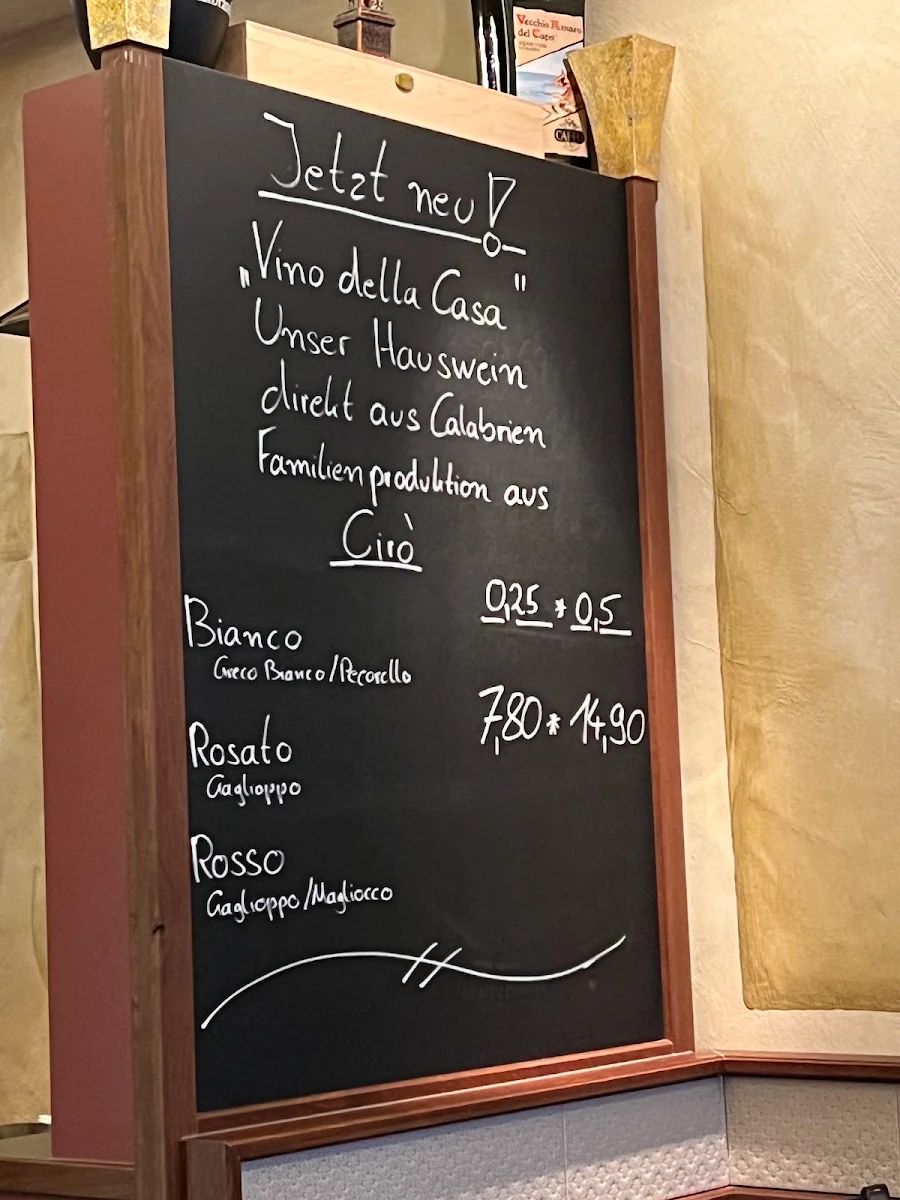 Vecchio Amaro
del Capo
CAFFO
Jetzt neu!
„Vino della Casa"
Unser Hauswein
direkt aus Calabrien
Familienproduktion aus
Cirò
0,25 * 0,5
Bianco
Greco Bianco/Pecorello
7,80 * 14,90
Rosato
Gaglioppo
Rosso
Gaglioppo/Magliocco